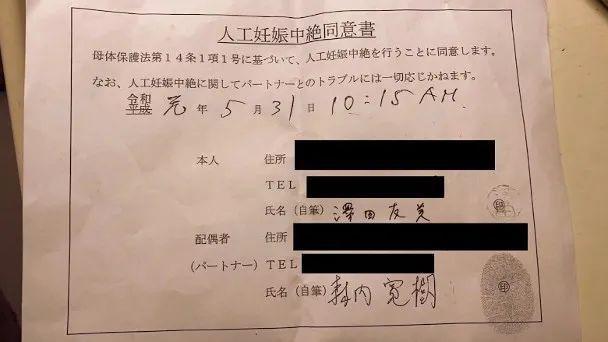 人工妊娠中絶同意書
母体保護法第14条1項1号に基づいて、人工妊娠中絶を行うことに同意します。
なお、人工妊娠中絶に関してパートナーとのトラブルには一切応じかねます。
令和
平成 元 年 5 月 31 日 10:15 AM.
本人 住所
TEL
氏名(自筆) 澤田 友美 印
配偶者 住所
(パートナー) TEL
氏名(自筆) 寛樹 印